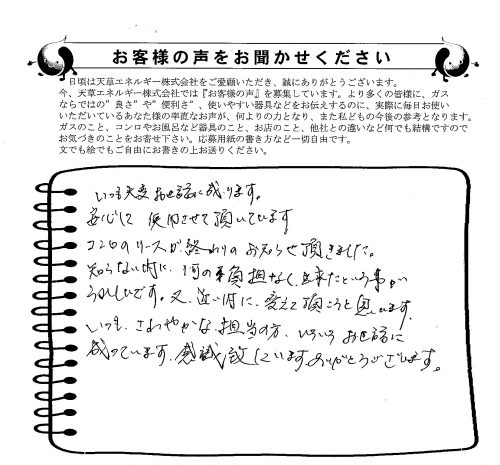 お客様の声をお聞かせください
日頃は天草エネルギー株式会社をご愛顧いただき、誠にありがとうございます。
今、天草エネルギー株式会社では『お客様の声』を募集しています。より多くの皆様に、ガス
ならではの”良さ”や”便利さ”、使いやすい器具などをお伝えするのに、実際に毎日お使い
いただいているあなた様の率直なお声が、何よりの力となり、また私どもの今後の参考となります。
ガスのこと、コンロやお風呂など器具のこと、お店のこと、他社との違いなど何でも結構ですので
お気づきのことをお寄せ下さい。応募用紙の書き方など一切自由です。
文でも絵でもご自由にお書きの上お送りください。
いつも大変お世話に成ります。
安心して使用させて頂いています
コンロのリースが終わりのお知らせ頂きました。
知らない内に、何の負担なく出来たという事が
うれしいです。又、近い内に、変えて頂こうと思います
いつも、さわやかな担当の方、いろいろお世話に
成っています、感謝致しています ありがとうございます。